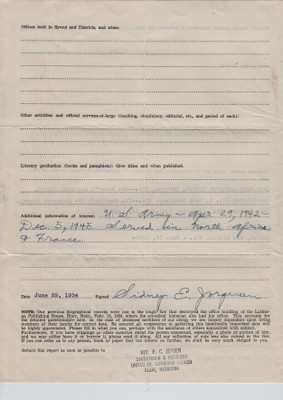 Offices held in Synod and Districts, and when:
Other activities and official services-at-large (teaching, chaplaincy, editorial, etc., and period of each):
Literary production (books and pamphlets): Give titles and when published.
Additional information of interest: U. S. Army - Apr 29, 1942 -
Dec. 5, 1945. Served in North Africa
& France.
Date June 29, 1954 Signed Sidney E. Jorgensen
NOTE: Our previous biographical records were lost in the tragic fire that destroyed the office building of the Lutheran Publishing House, Blair, Nebr.,
where the
historian also had his office. This accounts for
the detailed questionnaire now. In the case of deceased members of our clergy we are largely dependent upon living
members of their family for correct data. We earnestly
cooperation in gathering this historically important data will
be highly appreciated. Please fill in what you can, perhaps with the assistance of others acquainted with
Furthermore, if you have clippings or other material about the person concerned, especially a photo or picture of him,
and we may either have it or borrow it, please send it along. All our collection of
was also ruined in the fire.
If you can refer us to any person, book or paper that can inform us further, we shall be very much obliged to you.
Return this report as soon as possible to
REV. P. C. JENSEN
STATISTICIAN & HISTORIAN
UNITED EV. LUTHERAN CHURCH
BLAIR, NEBRASKA